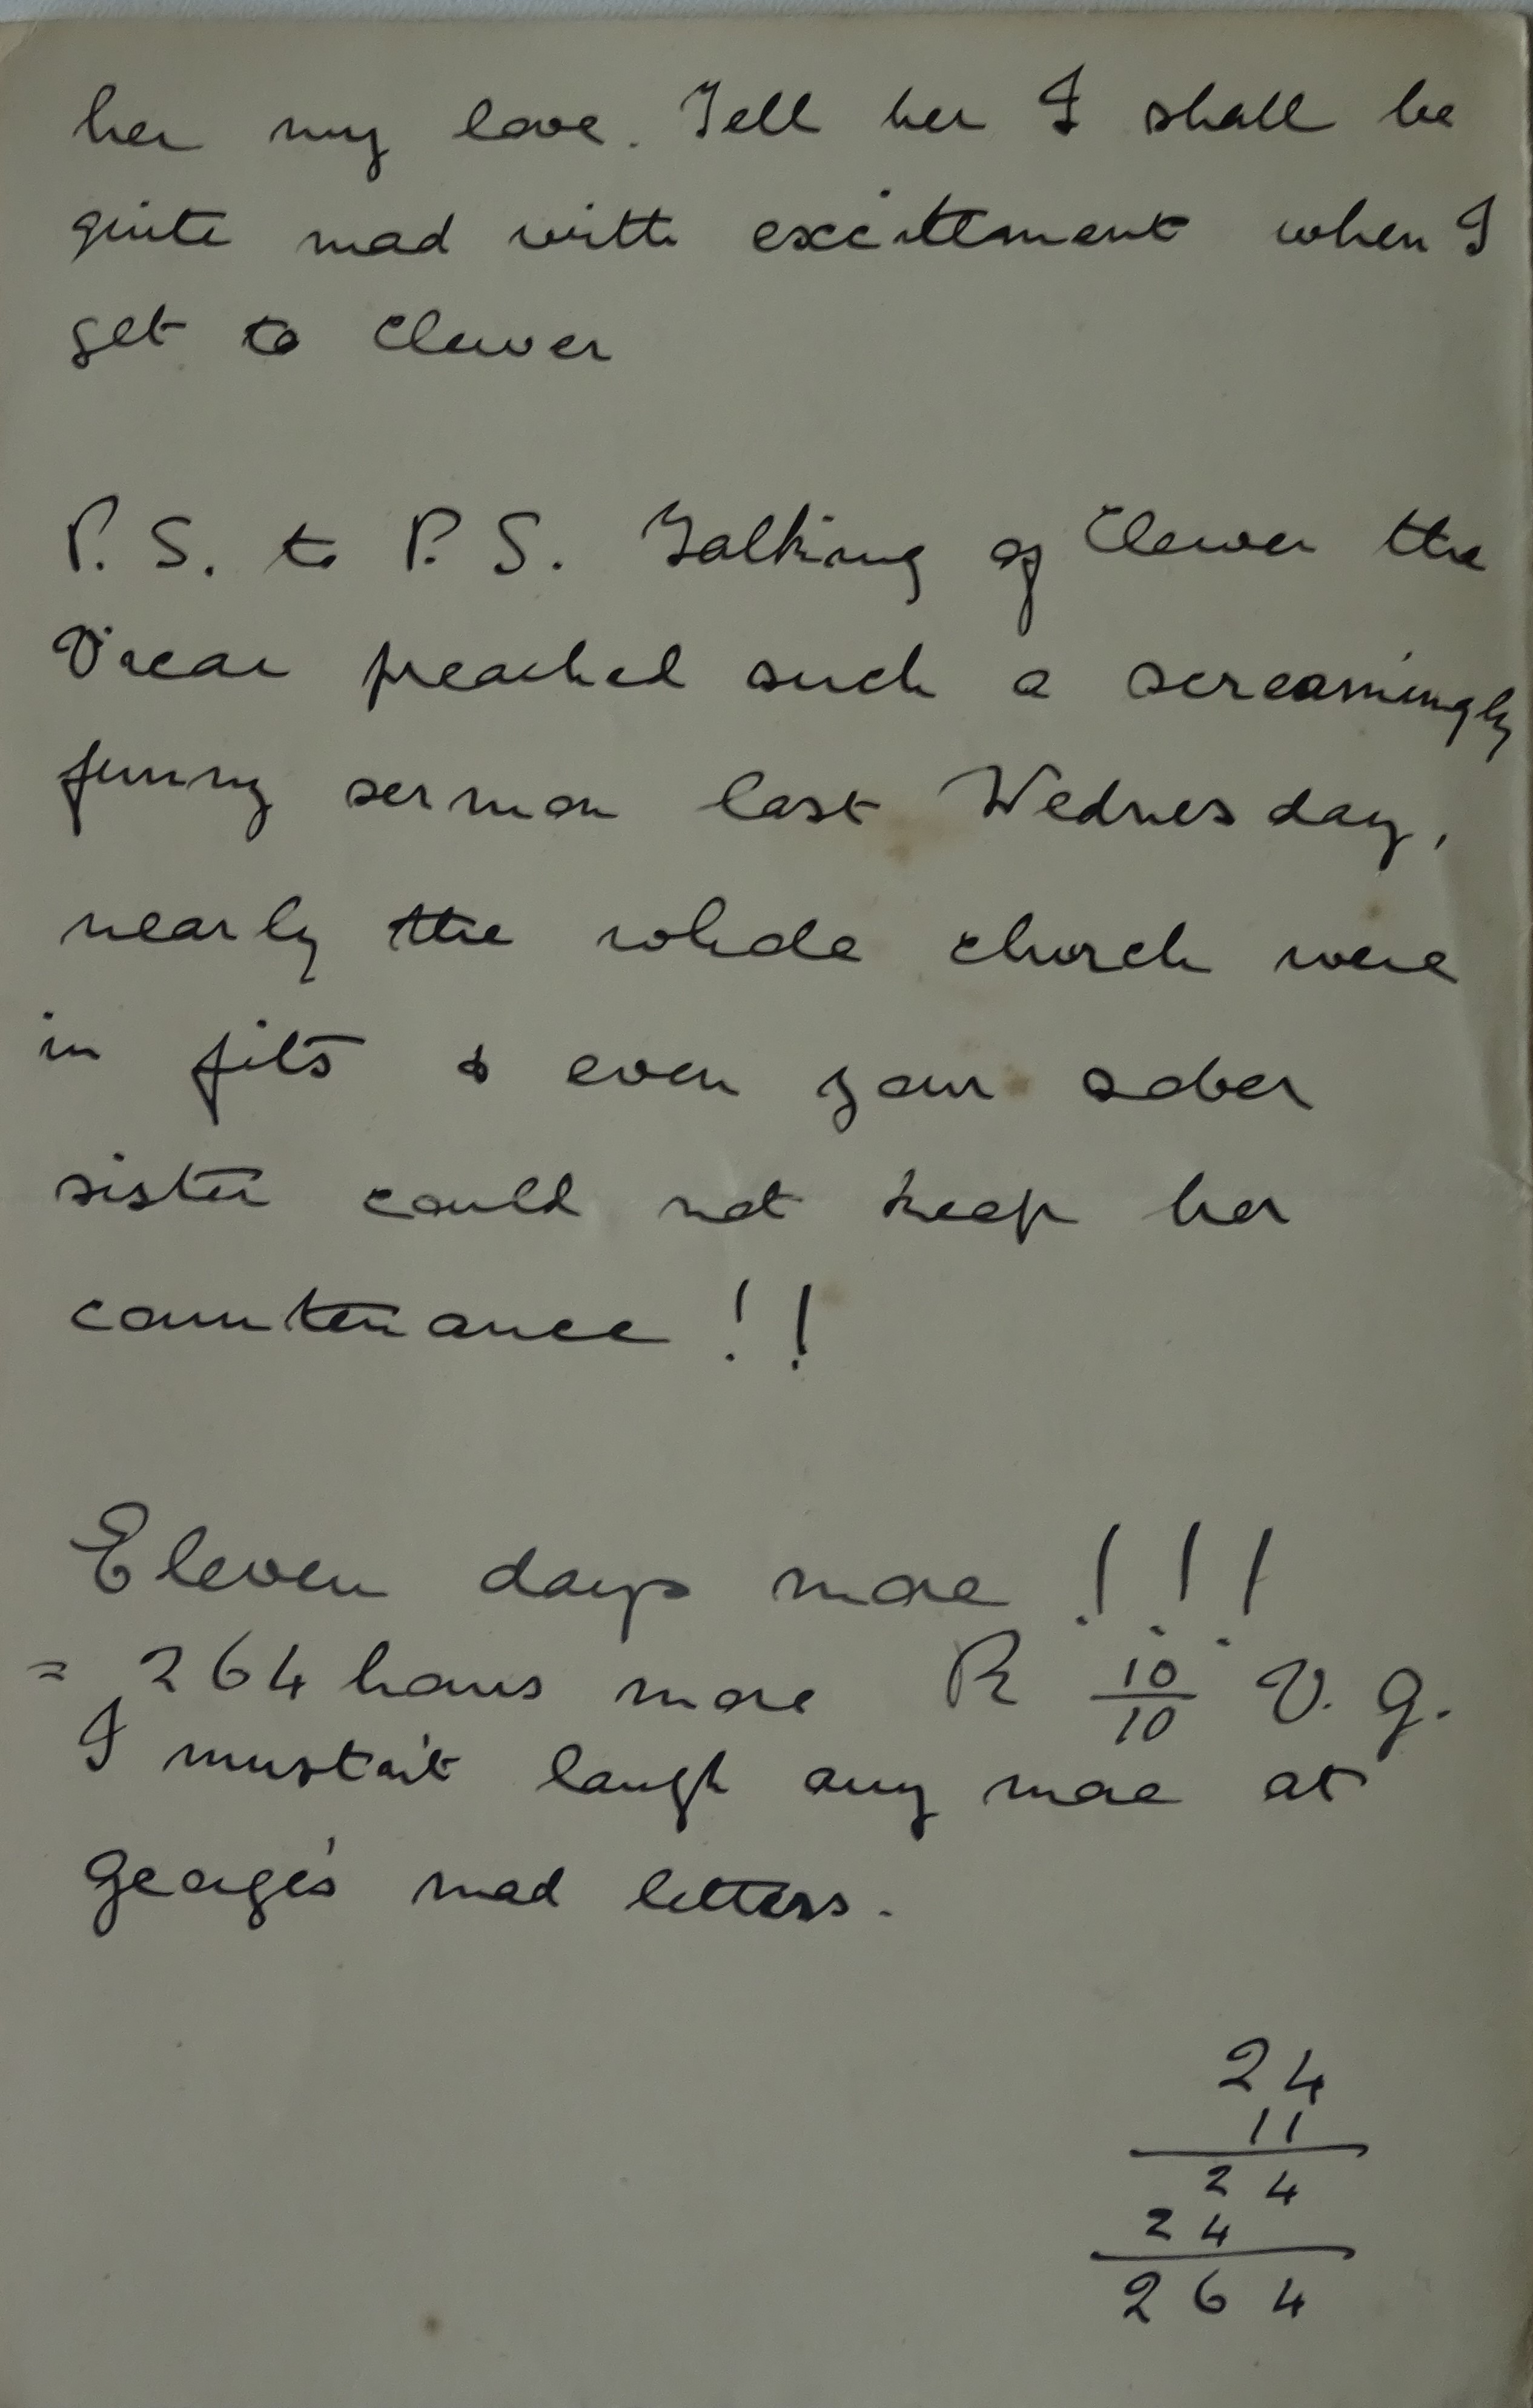 her my love. Tell her I shall be
quite mad with excitement when I
get to Clewer
P. S. to P. S. Talking of Clewer the
Vicar preached such a screamingly
funny sermon last Wednesday,
nearly the whole church were
in fits & even your sober
sister could not keep her
countenance !!
Eleven days more !!!
= 264 hours more R 10/10 V. G.
I mustn't laugh any more at
George's mad letters.
24
11
24
24
264